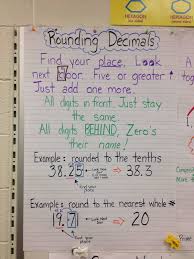 HEXAGON
HEXAGON
Rounding Decimals
Find your place, Look
next door. Five or greater
Just add one more.
All digits in front, Just stay
the same.
All digits BEHIND, Zero's
their name!
Example: rounded to the tenths
38.25 → 38.3
Find your place
Example: round to the nearest whole #
19.7 → 20
Find your place